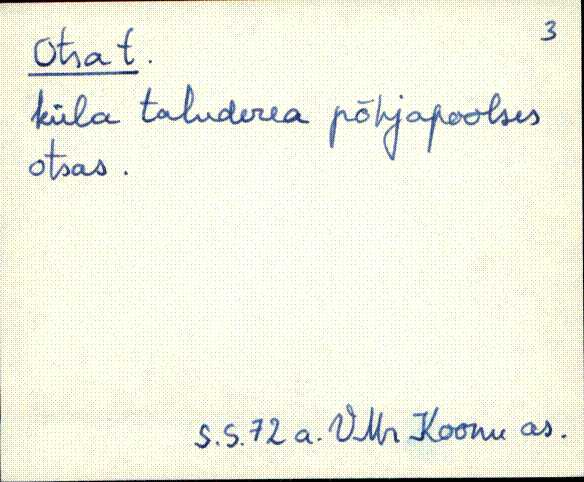 3
Otsa t.
küla taluderea põhjapoolses
otsas.
s. s. 72 a. VMr Koonu as.